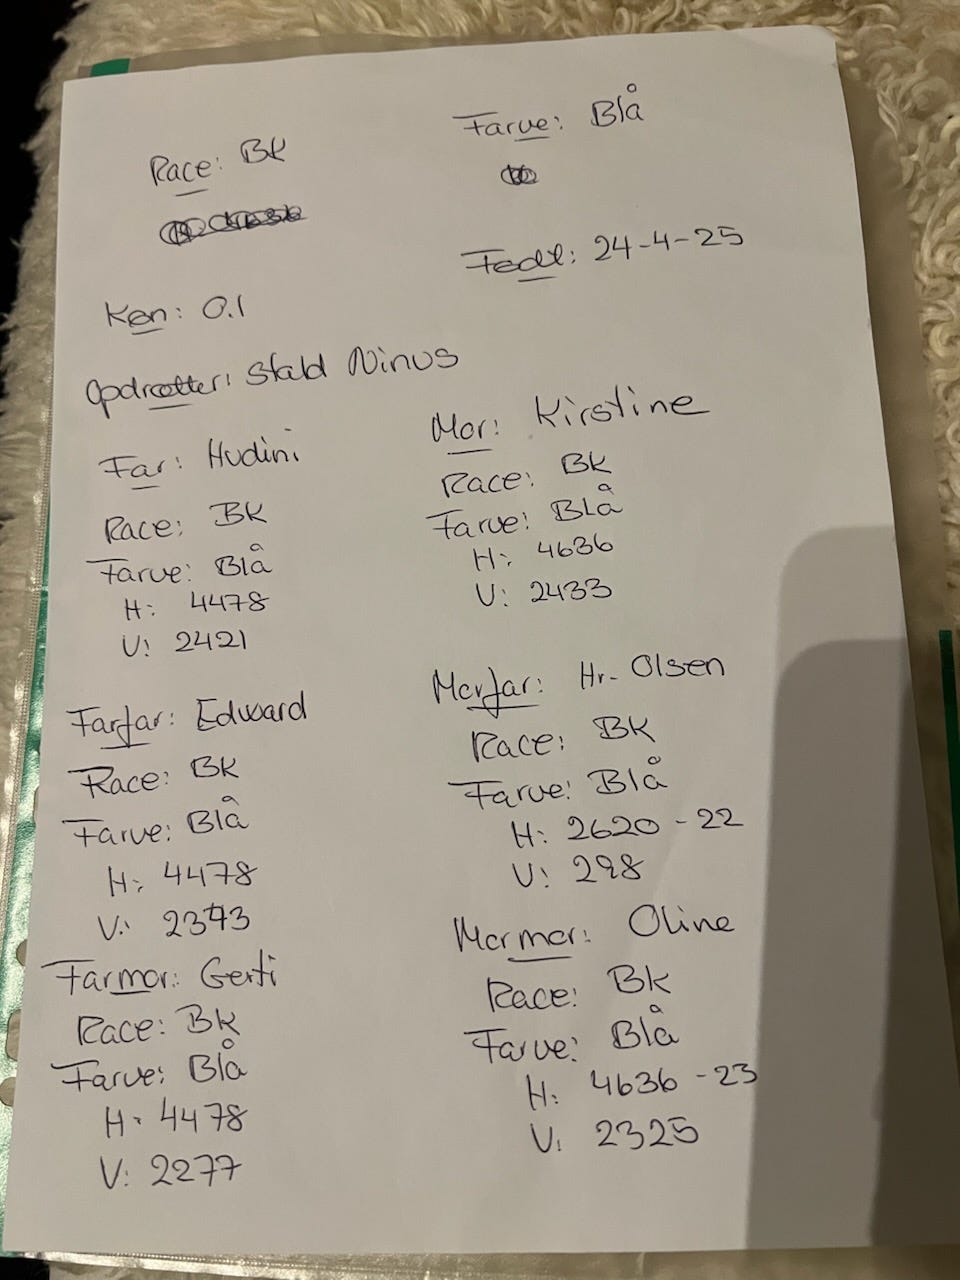 Race: BK
Farve: Blå
Født: 24-4-25
Køn: 0.1
Opdrætter: Stald Ninus
Far: Hudini
Race: BK
Farve: Blå
H: 4478
V: 2421
Mor: Kirstine
Race: BK
Farve: Blå
H: 4636
V: 2433
Farfar: Edward
Race: BK
Farve: Blå
H: 4478
V: 2343
Morfar: Hr. Olsen
Race: BK
Farve: Blå
H: 2620 - 22
V: 298
Farmor: Gerti
Race: BK
Farve: Blå
H: 4478
V: 2277
Mormor: Oline
Race: BK
Farve: Blå
H: 4636 - 23
V: 2325